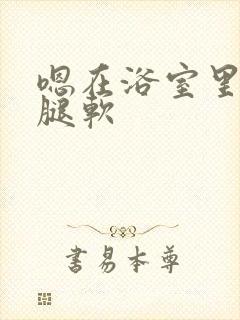 嗯在浴室里
腿軟
書易本尊